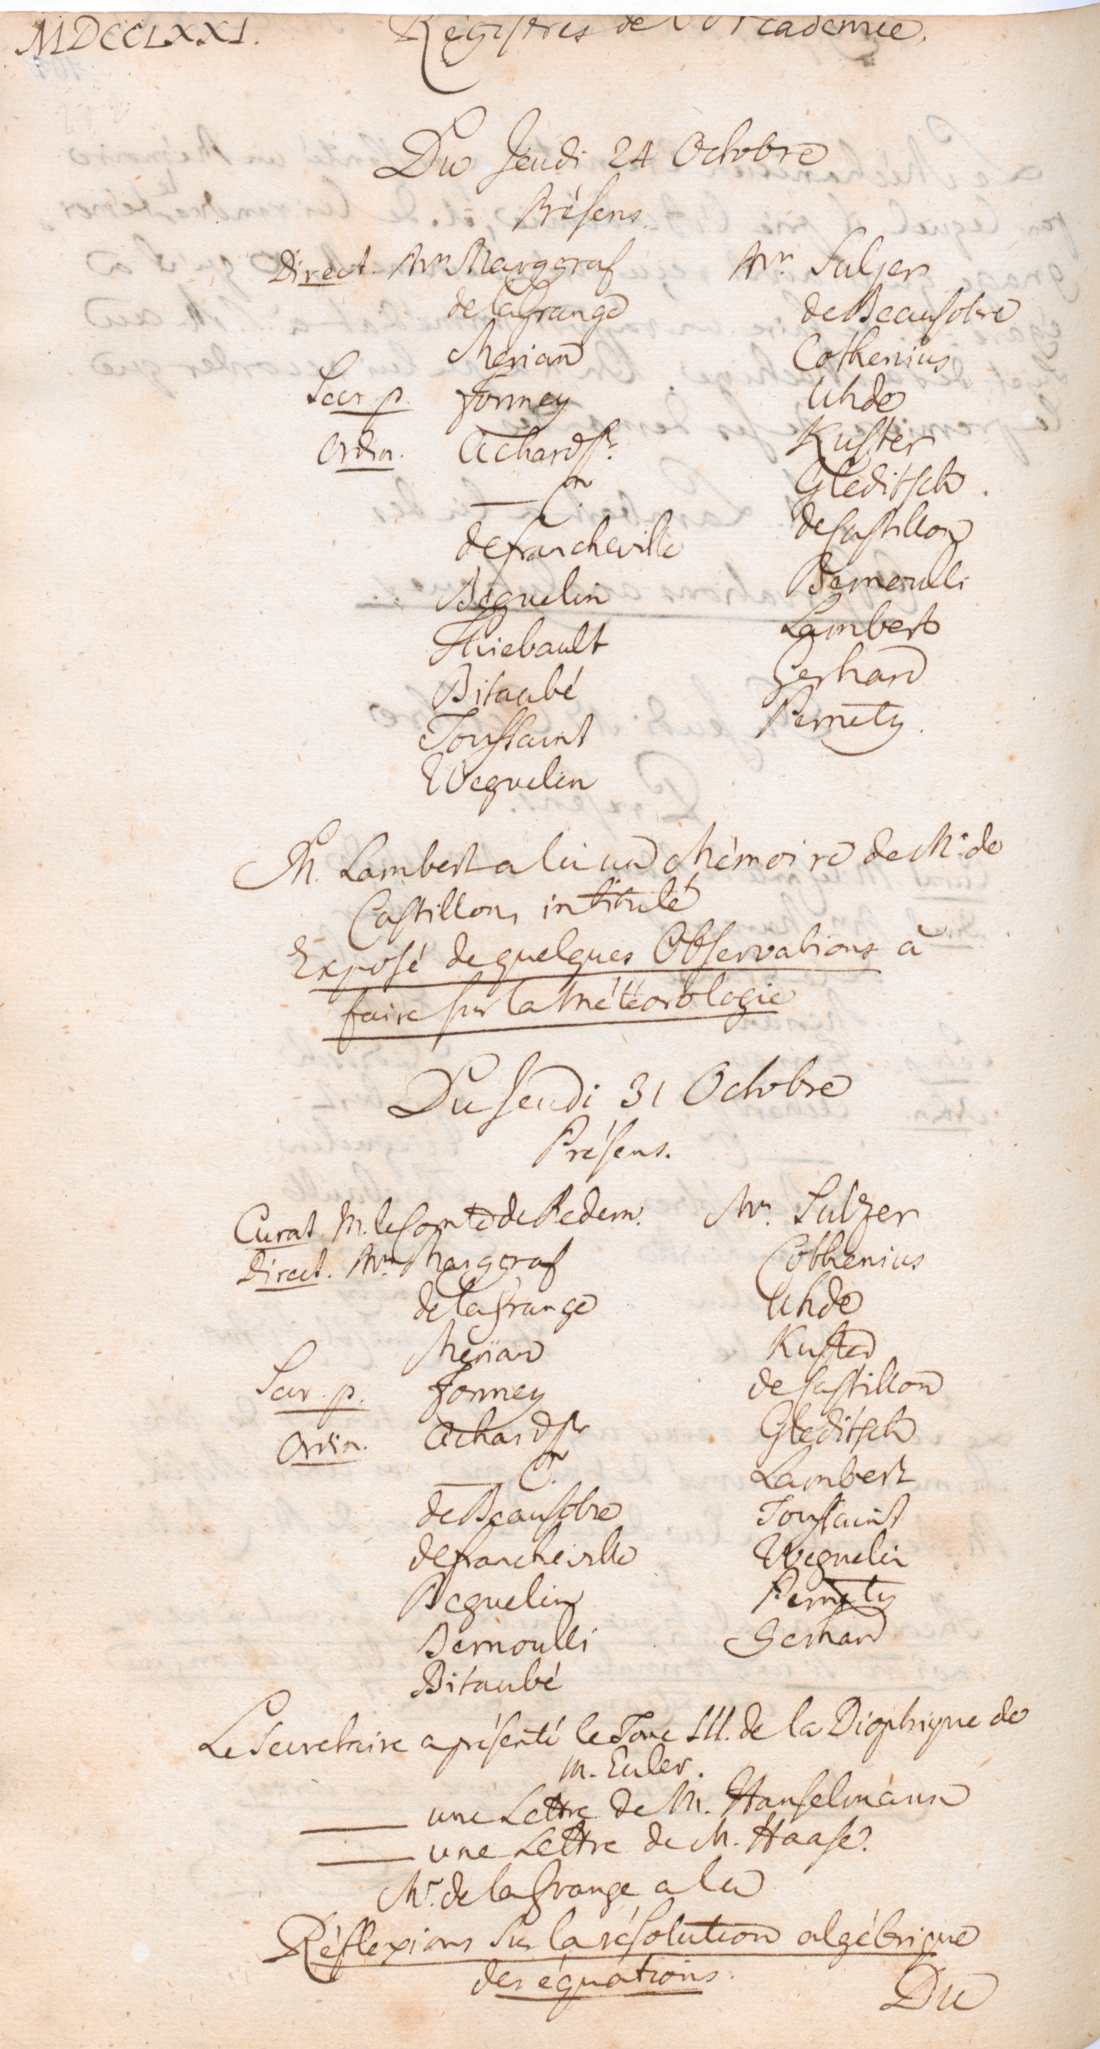 MDCCLXXI.
Régistres de l'Academie.
Du Jeudi 24 Octobre
Présens.
Direct. Mrs Marggraf
de la Grange
Merian
Secr. p. Formey
Ordin. Achard Sr.
——— Jr.
de Francheville
Béguelin
Thiebault
Bitaubé
Toussaint
Weguelin
Mrs Sulzer
de Beausobre
Cothenius
Uhde
Kuster
Gleditsch.
de Castillon
Bernoulli
Lambert
Gerhard
Pernety.
M. Lambert a lu un Mémoire de Mr. de
Castillon, intitulé
Exposé de quelques Observations à
faire sur la Météorologie
Du Jeudi 31 Octobre
Présens.
Curat. M. le Comte de Redern.
Direct. Mrs Marggraf
de la Grange
Merian
Secr. p. Formey
Ordin. Achard Sr
——— Jr.
de Beausobre
de Francheville
Beguelin
Bernoulli
Bitaubé
Mrs. Sulzer
Cothenius
Uhde
Kuster
de Castillon
Gleditsch
Lambert
Toussaint
Weguelin
Pernety
Gerhard
Le Secretaire a présenté le Tome III. de la Dioptrique de
M. Euler.
——— une Lettre de M. Hanselmann
——— une Lettre de M. Haase.
Mr. de la Grange a lu
Réflexions sur la résolution algébrique
des équations.
Du